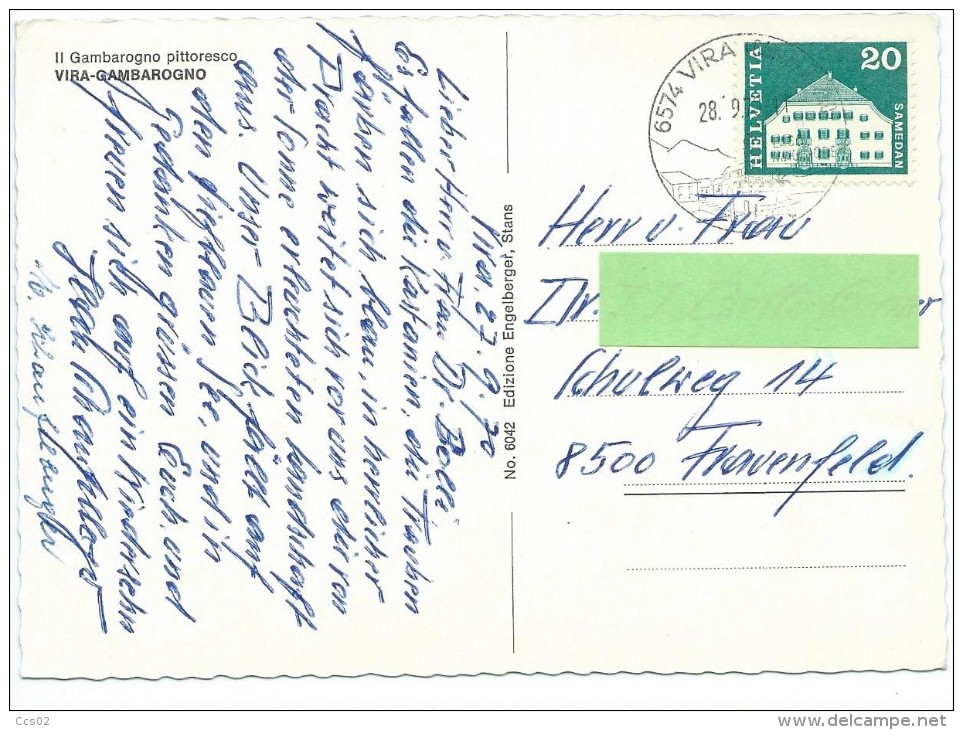 Il Gambarogno pittoresco
VIRA-GAMBAROGNO
Vira 27.9.70
Lieber Herr u. Frau Dr. Bolli
Es fallen die Kastanien, die Trauben
färben sich blau, in herrlicher
Pracht weitet sich vor uns die von
der Sonne erleuchteten Landschaft
aus. Unser Blick fällt auf
den tiefblauen See, und in
Gedanken grüssen Euch und
freuen sich auf ein Wiedersehn
No. 6042 Edizione Engelberger, Stans
6574 VIRA
28. 9.
HELVETIA
20
SAMEDAN
Herr u. Frau
Dr.
Schulweg 14
8500 Frauenfeld.
Ccs02
http://www.delcampe.net